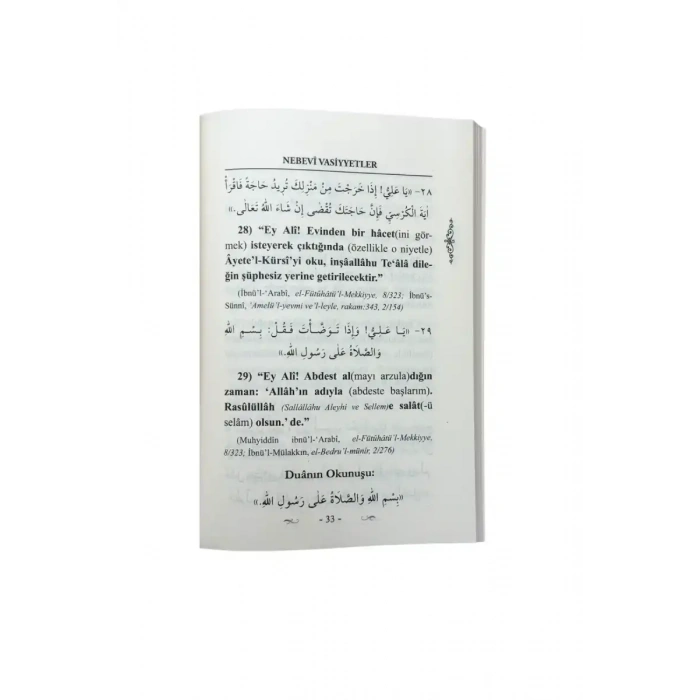 NEBEVÎ VASİYYETLER
٢٨- «يَا عَلِيُّ! إِذَا خَرَجْتَ مِنْ مَنْزِلِكَ تُرِيدُ حَاجَةً فَاقْرَأْ
اٰيَةَ الْكُرْسِيِّ فَإِنَّ حَاجَتَكَ تُقْضٰى إِنْ شَاءَ اللّٰهُ تَعَالٰى.»
28) “Ey Alî! Evinden bir hâcet(ini gör-
mek) isteyerek çıktığında (özellikle o niyetle)
Âyete’l-Kürsî’yi oku, inşâallâhu Te‘âlâ dile-
ğin şüphesiz yerine getirilecektir.”
(İbnü’l-‘Arabî, el-Fütûhâtü’l-Mekkiyye, 8/323; İbnü’s-
Sünnî, ‘Amelü’l-yevmi ve’l-leyle, rakam:343, 2/154)
٢٩- «يَا عَلِيُّ! وَإِذَا تَوَضَّأْتَ فَقُلْ: بِسْمِ اللّٰهِ
وَالصَّلَاةُ عَلٰى رَسُولِ اللّٰهِ.»
29) “Ey Alî! Abdest al(mayı arzula)dığın
zaman: ‘Allâh’ın adıyla (abdeste başlarım).
Rasûlüllâh (Sallâllâhu Aleyhi ve Sellem)e salât(-ü
selâm) olsun.’ de.”
(Muhyiddîn ibnü’l-‘Arabî, el-Fütûhâtü’l-Mekkiyye,
8/323; İbnü’l-Mülakkın, el-Bedru’l-münîr, 2/276)
Duânın Okunuşu:
«بِسْمِ اللّٰهِ وَالصَّلَاةُ عَلٰى رَسُولِ اللّٰهِ.»
- 33 -